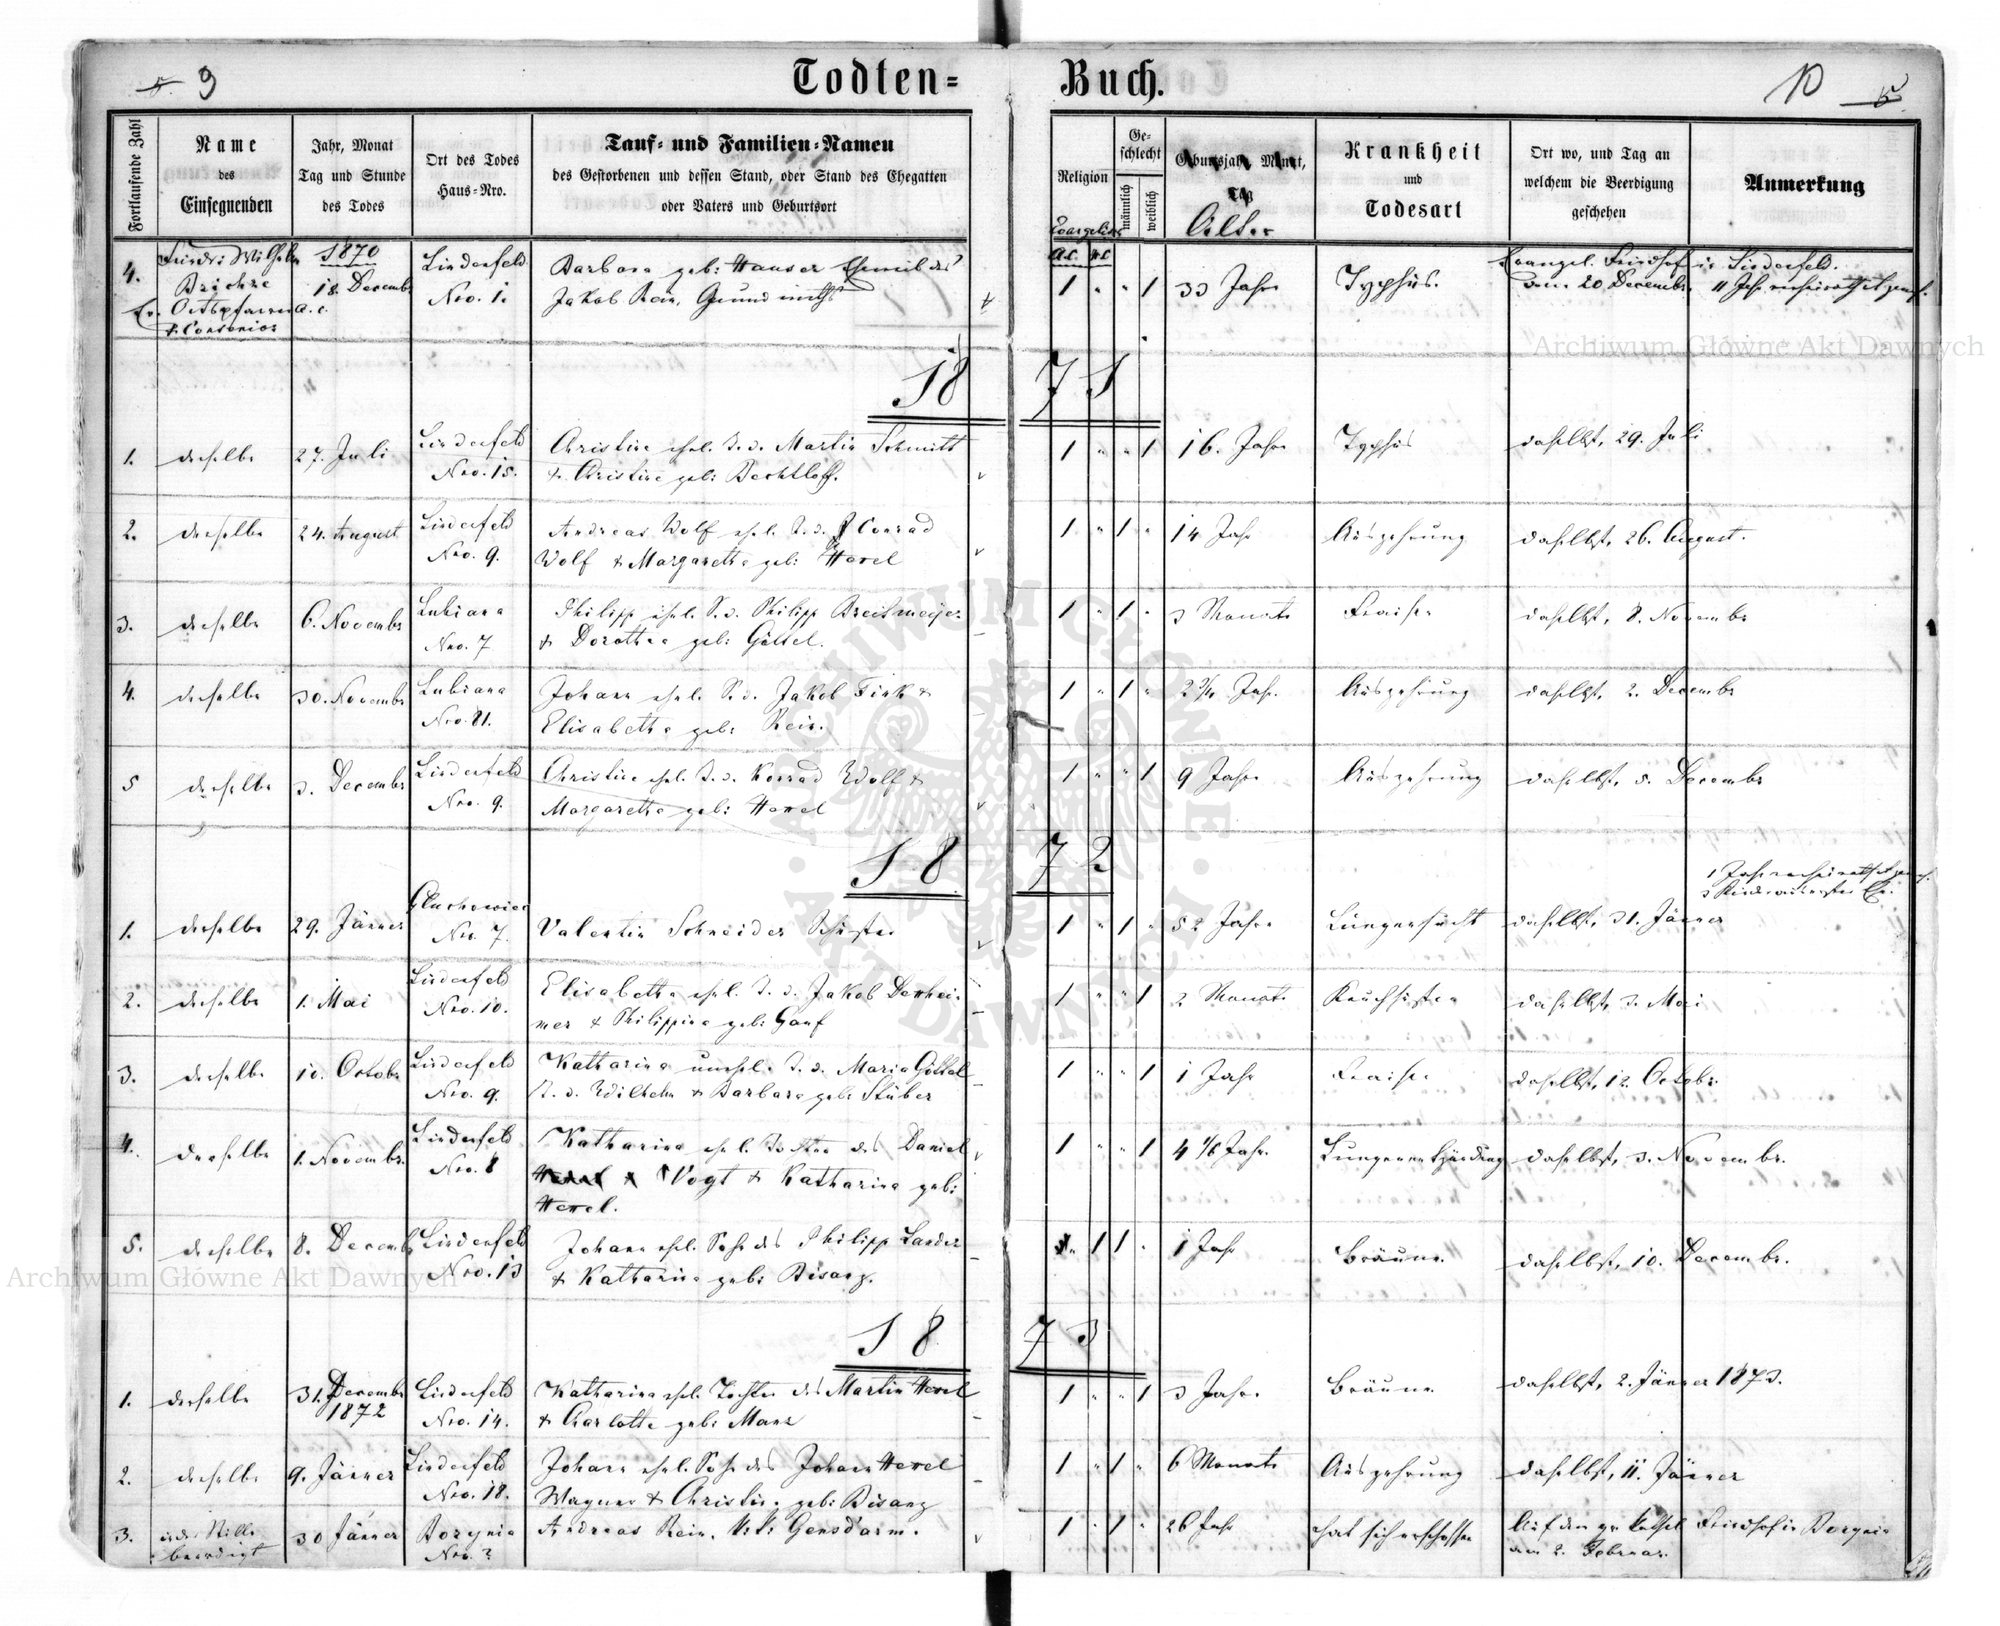 9
Todten-
Buch.
10
Fortlaufende Zahl
Name
des
Einsegnenden
Jahr, Monat
Tag und Stunde
des Todes
Ort des Todes
Haus-Nro.
Tauf- und Familien-Namen
des Gestorbenen und dessen Stand, oder Stand des Ehegatten
oder Vaters und Geburtsort
Religion
Ge-
schlecht
männlich
weiblich
Geburtsjahr, Monat,
Tag
Alter
Krankheit
und
Todesart
Ort wo, und Tag an
welchem die Beerdigung
geschehen
Anmerkung
A.C. H.C.
4.
1870
18. Decemb.
Lindenfeld
Nro. 1.
Barbara geb: Hauser Eheweib des
Jakob Rein, Grundwirth
1 " " 1
33 Jahre
Typhus.
Evangel. Friedhof in Lindenfeld.
den 20 Decembr.
1871
1. derselbe 27. Juli
Lindenfeld
Nro. 15.
Christine ehel. T. d. Martin Schmitt
& Christine geb: Bechtloff.
1 " " 1
16. Jahre
Typhus
daselbst, 29. Juli
2. derselbe 24. August
Lindenfeld
Nro. 9.
Andreas Wolf ehel. S. d. Conrad
Wolf & Margaretha geb: Hexel
1 " 1 "
14 Jahr
Auszehrung
daselbst, 26. August.
3. derselbe 6. Novembr
Lubiana
Nro. 7
Philipp ehel. S. d. Philipp Breitmeyer
& Dorothea geb: Göttel.
1 " 1 "
3 Monate
Fraisen
daselbst, 8. Novembr
4. derselbe 30. Novembr
Lubiana
Nro. 81.
Johann ehel. S. d. Jakob Fink &
Elisabetha geb: Rein.
1 " 1 "
2 3/4 Jahr.
Auszehrung
daselbst, 2. Decembr
5 derselbe 3. Decembr
Lindenfeld
Nro. 9.
Christine ehel. T. d. Konrad Wolf &
Margaretha geb: Hexel
1 " " 1
9 Jahre
Auszehrung
daselbst, 5. Decembr
1872
1. derselbe 29. Jänner
Nro. 7.
Valentin Schneider Schuster
1 " 1 "
52 Jahre
Lungensucht
daselbst, 31. Jänner
2. derselbe 1. Mai
Lindenfeld
Nro. 10.
Elisabetha ehel. T. d. Jakob Dexhei-
mer & Philippine geb: Ganf
1 " " 1
2 Monate
Keuchhusten
daselbst, 3. Mai
3. derselbe 10. Octobr
Lindenfeld
Nro. 9.
Katharina unehel. T. d. Maria Göttel
T. d. Wilhelm & Barbara geb: Stüber
1 " " 1
1 Jahr
Fraisen
daselbst, 12. Octobr.
4. derselbe 1. Novembr.
Lindenfeld
Nro. 8
Katharina ehel. Tochter des Daniel
Vogt & Katharina geb:
Hexel.
1 " " 1
4 1/6 Jahr.
Lungenentzündung
daselbst, 3. Novembr.
5. derselbe 8. Decembr
Lindenfeld
Nro. 13
Johann ehel. Sohn des Philipp Lander
& Katharina geb: Bisanz.
1 1 "
1 Jahr
Bräune
daselbst, 10. Decembr.
1873
1. derselbe 31. Decembr
1872
Lindenfeld
Nro. 14.
Katharina ehel. Tochter des Martin Hexel
& Charlotte geb: Manz
1 " " 1
3 Jahre
Bräune
daselbst, 2. Jänner 1873.
2. derselbe 9. Jänner
Lindenfeld
Nro. 18.
Johann ehel. Sohn des Johann Hexel
Wagner & Christine geb: Bisanz
1 " 1 "
6 Monate
Auszehrung
daselbst, 11. Jänner
3. in der Stille
beerdigt
30 Jänner
Nro. ?
Andreas Rein, k.k. Gensdarm.
1 " 1 "
26 Jahr
hat sich erschossen
am 2. Februar.
Archiwum Główne Akt Dawnych
Archiwum Główne Akt Dawnych
ARCHIWUM GŁÓWNE AKT DAWNYCH